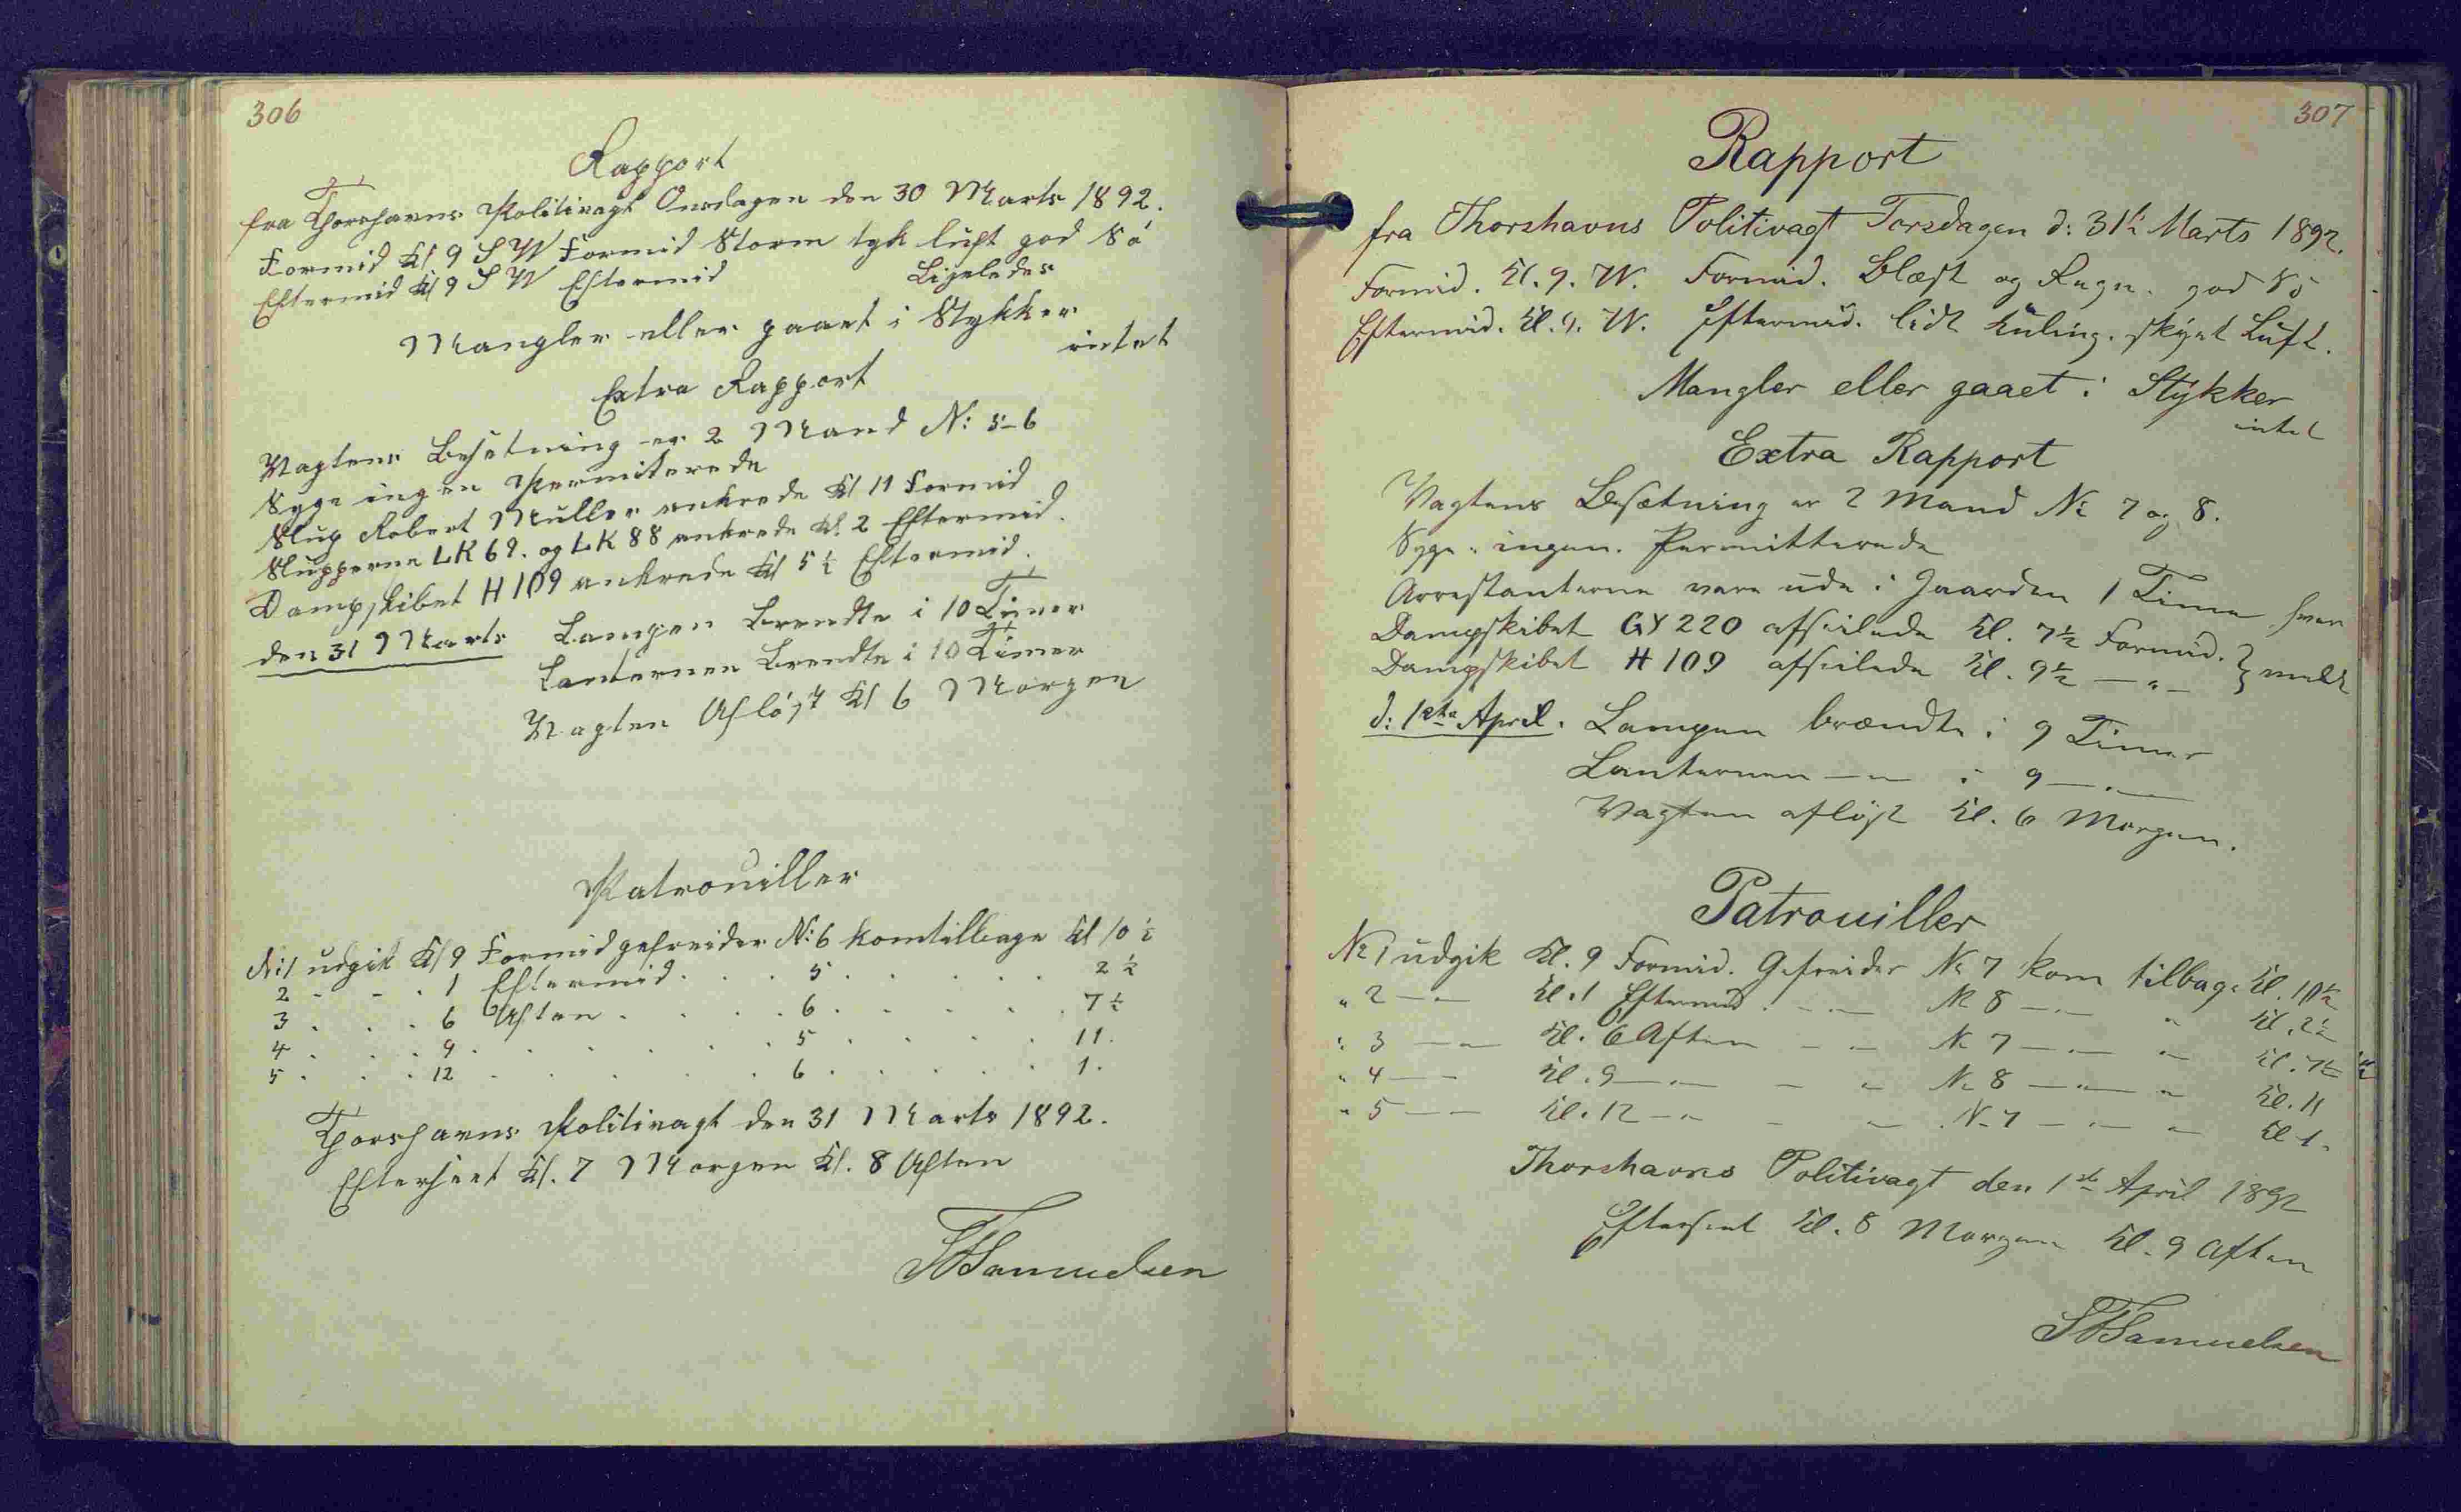 306
Rapport
fra Thorshavns Politivagt Onsdagen den 30 Marts 1892.
Formid Kl 9 S W Formid Storm tyk luft god Sö
Eftermid Kl 9 S W Eftermid Ligeledes
Mangler eller gaaet i Stykker
intet
Extra Rapport
Vagtens Besetning er 2 Mand N: 5-6
Syge ingen Permiterede
Slup Robert Müller ankrede Kl 11 Formid
Slupperne LK 69. og LK 88 ankrede Kl. 2 Eftermid.
Dampskibet H 109 ankrede Kl 5½ Eftermid.
den 31 Marts Lampen Brendte i 10 Timer
Lanternen Brendte i 10 Timer
Vagten Aflöst Kl 6 Morgen
Patrouiller
N: 1 udgik Kl 9 Formid gefreider N: 6 kom tilbage Kl 10½
2 - - . 1 Eftermid . . . 5 . . . . . 2½
3 . . . 6 Aften . . . . 6 . . . . . 7½
4 . . . 9 . . . . . . 5 . . . . . 11.
5 . . . 12 . . . . . 6 . . . . . 1.
Thorshavns Politivagt den 31 Marts 1892.
Efterseet Kl. 7 Morgen Kl. 8 Aften
Samuelsen
307
Rapport
fra Thorshavns Politivagt Torsdagen d: 31t Marts 1892.
Formid. Kl. 9. W. Formid. Blæst og Regn. god Sö
Eftermid. Kl. 9. W. Eftermid. lidt Küling. skyet Luft.
Mangler eller gaaet i Stykker
intet
Extra Rapport
Vagtens Besætning er 2 Mand No 7 og 8.
Syge: ingen. Permitterede
Arrestanterne vare ude i Gaarden 1 Time hver
Dampskibet GY 220 afseilede Kl. 7½ Formid. }
Dampskibet H 109 afseilede Kl. 9½ — " — }
d: 1ste April. Lampen brændte i 9 Timer
Lanternen — " — i 9 — " —
Vagten aflöst Kl. 6 Morgen.
Patrouiller
No 1 udgik Kl. 9 Formid. Gefreider No 7 kom tilbage Kl. 10½
" 2 — " — Kl. 1 Eftermid. — " — No 8 — " — " Kl. 2½
" 3 — " — Kl. 6 Aften — " — No 7 — " — " Kl. 7½
" 4 — " — Kl. 9 — " — — " — No 8 — " — " — Kl. 11
" 5 — " — Kl. 12 — " — — " — No 7 — " — " — Kl 1.
Thorshavns Politivagt den 1ste April 1892
Efterseet Kl. 8 Morgen Kl. 9 Aften
Samuelsen